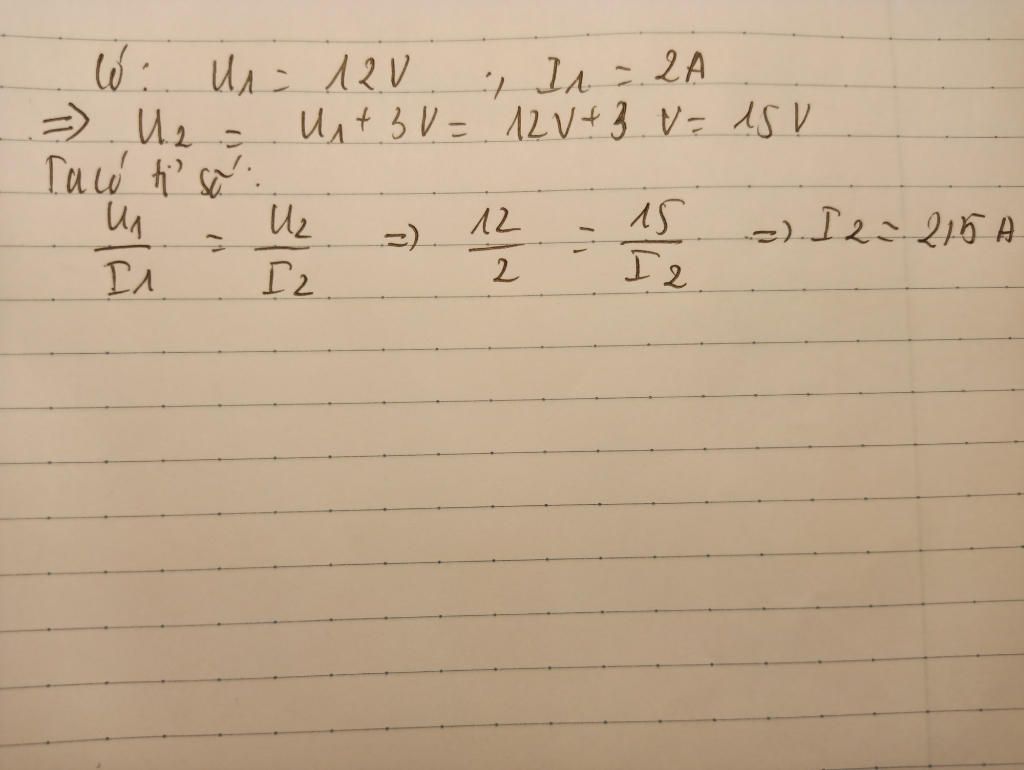 Có: U1 = 12V ; I1 = 2A
=> U2 = U1 + 3V = 12V + 3 V = 15 V
Ta có tỉ số:
U1/I1 = U2/I2 => 12/2 = 15/I2 => I2 = 2,5 A